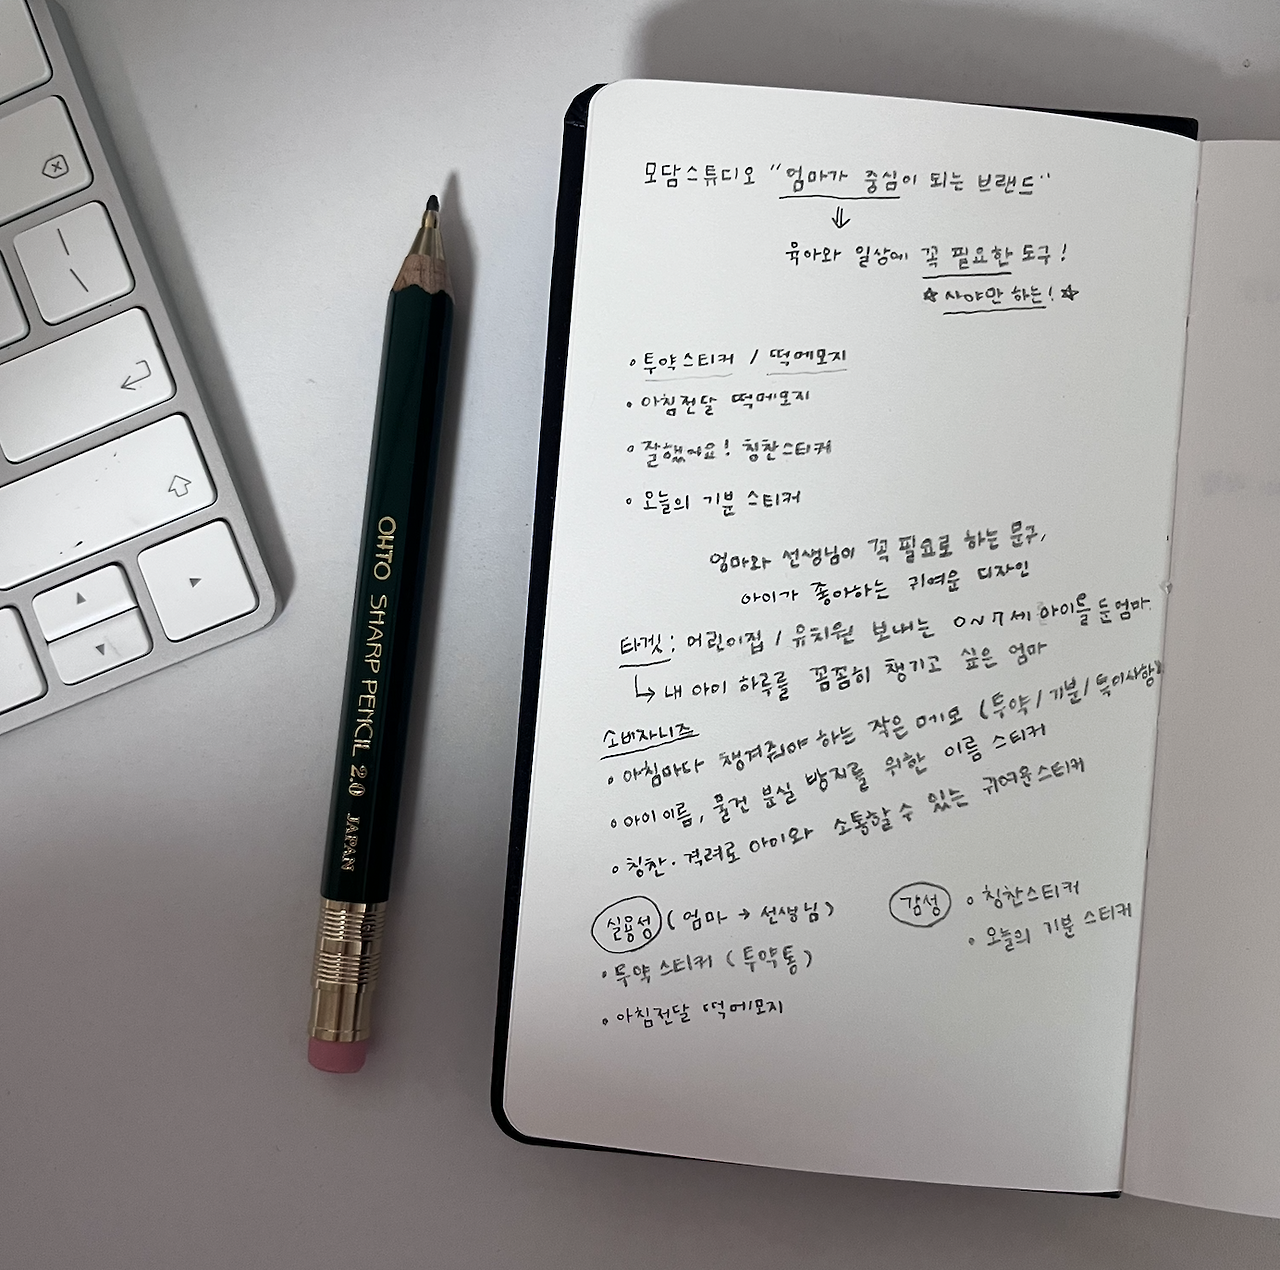 모담스튜디오 "엄마가 중심이 되는 브랜드"
⇓
육아와 일상에 꼭 필요한 도구!
☆ 사야만 하는! ☆
• 투약스티커 / 떡메모지
• 아침전달 떡메모지
• 잘했어요! 칭찬스티커
• 오늘의 기분 스티커
엄마와 선생님이 꼭 필요로 하는 문구,
아이가 좋아하는 귀여운 디자인
타겟 : 어린이집 / 유치원 보내는 0~7세 아이를 둔 엄마.
↳ 내 아이 하루를 꼼꼼히 챙기고 싶은 엄마
소비자니즈
• 아침마다 챙겨줘야 하는 작은 메모 (투약/기분/특이사항)
• 아이 이름, 물건 분실 방지를 위한 이름 스티커
• 칭찬·격려로 아이와 소통할 수 있는 귀여운 스티커
실용성 (엄마 → 선생님)
• 투약 스티커 (투약통)
• 아침전달 떡메모지
감성 • 칭찬스티커
• 오늘의 기분 스티커
OHTO SHARP PENCIL 2.0 JAPAN